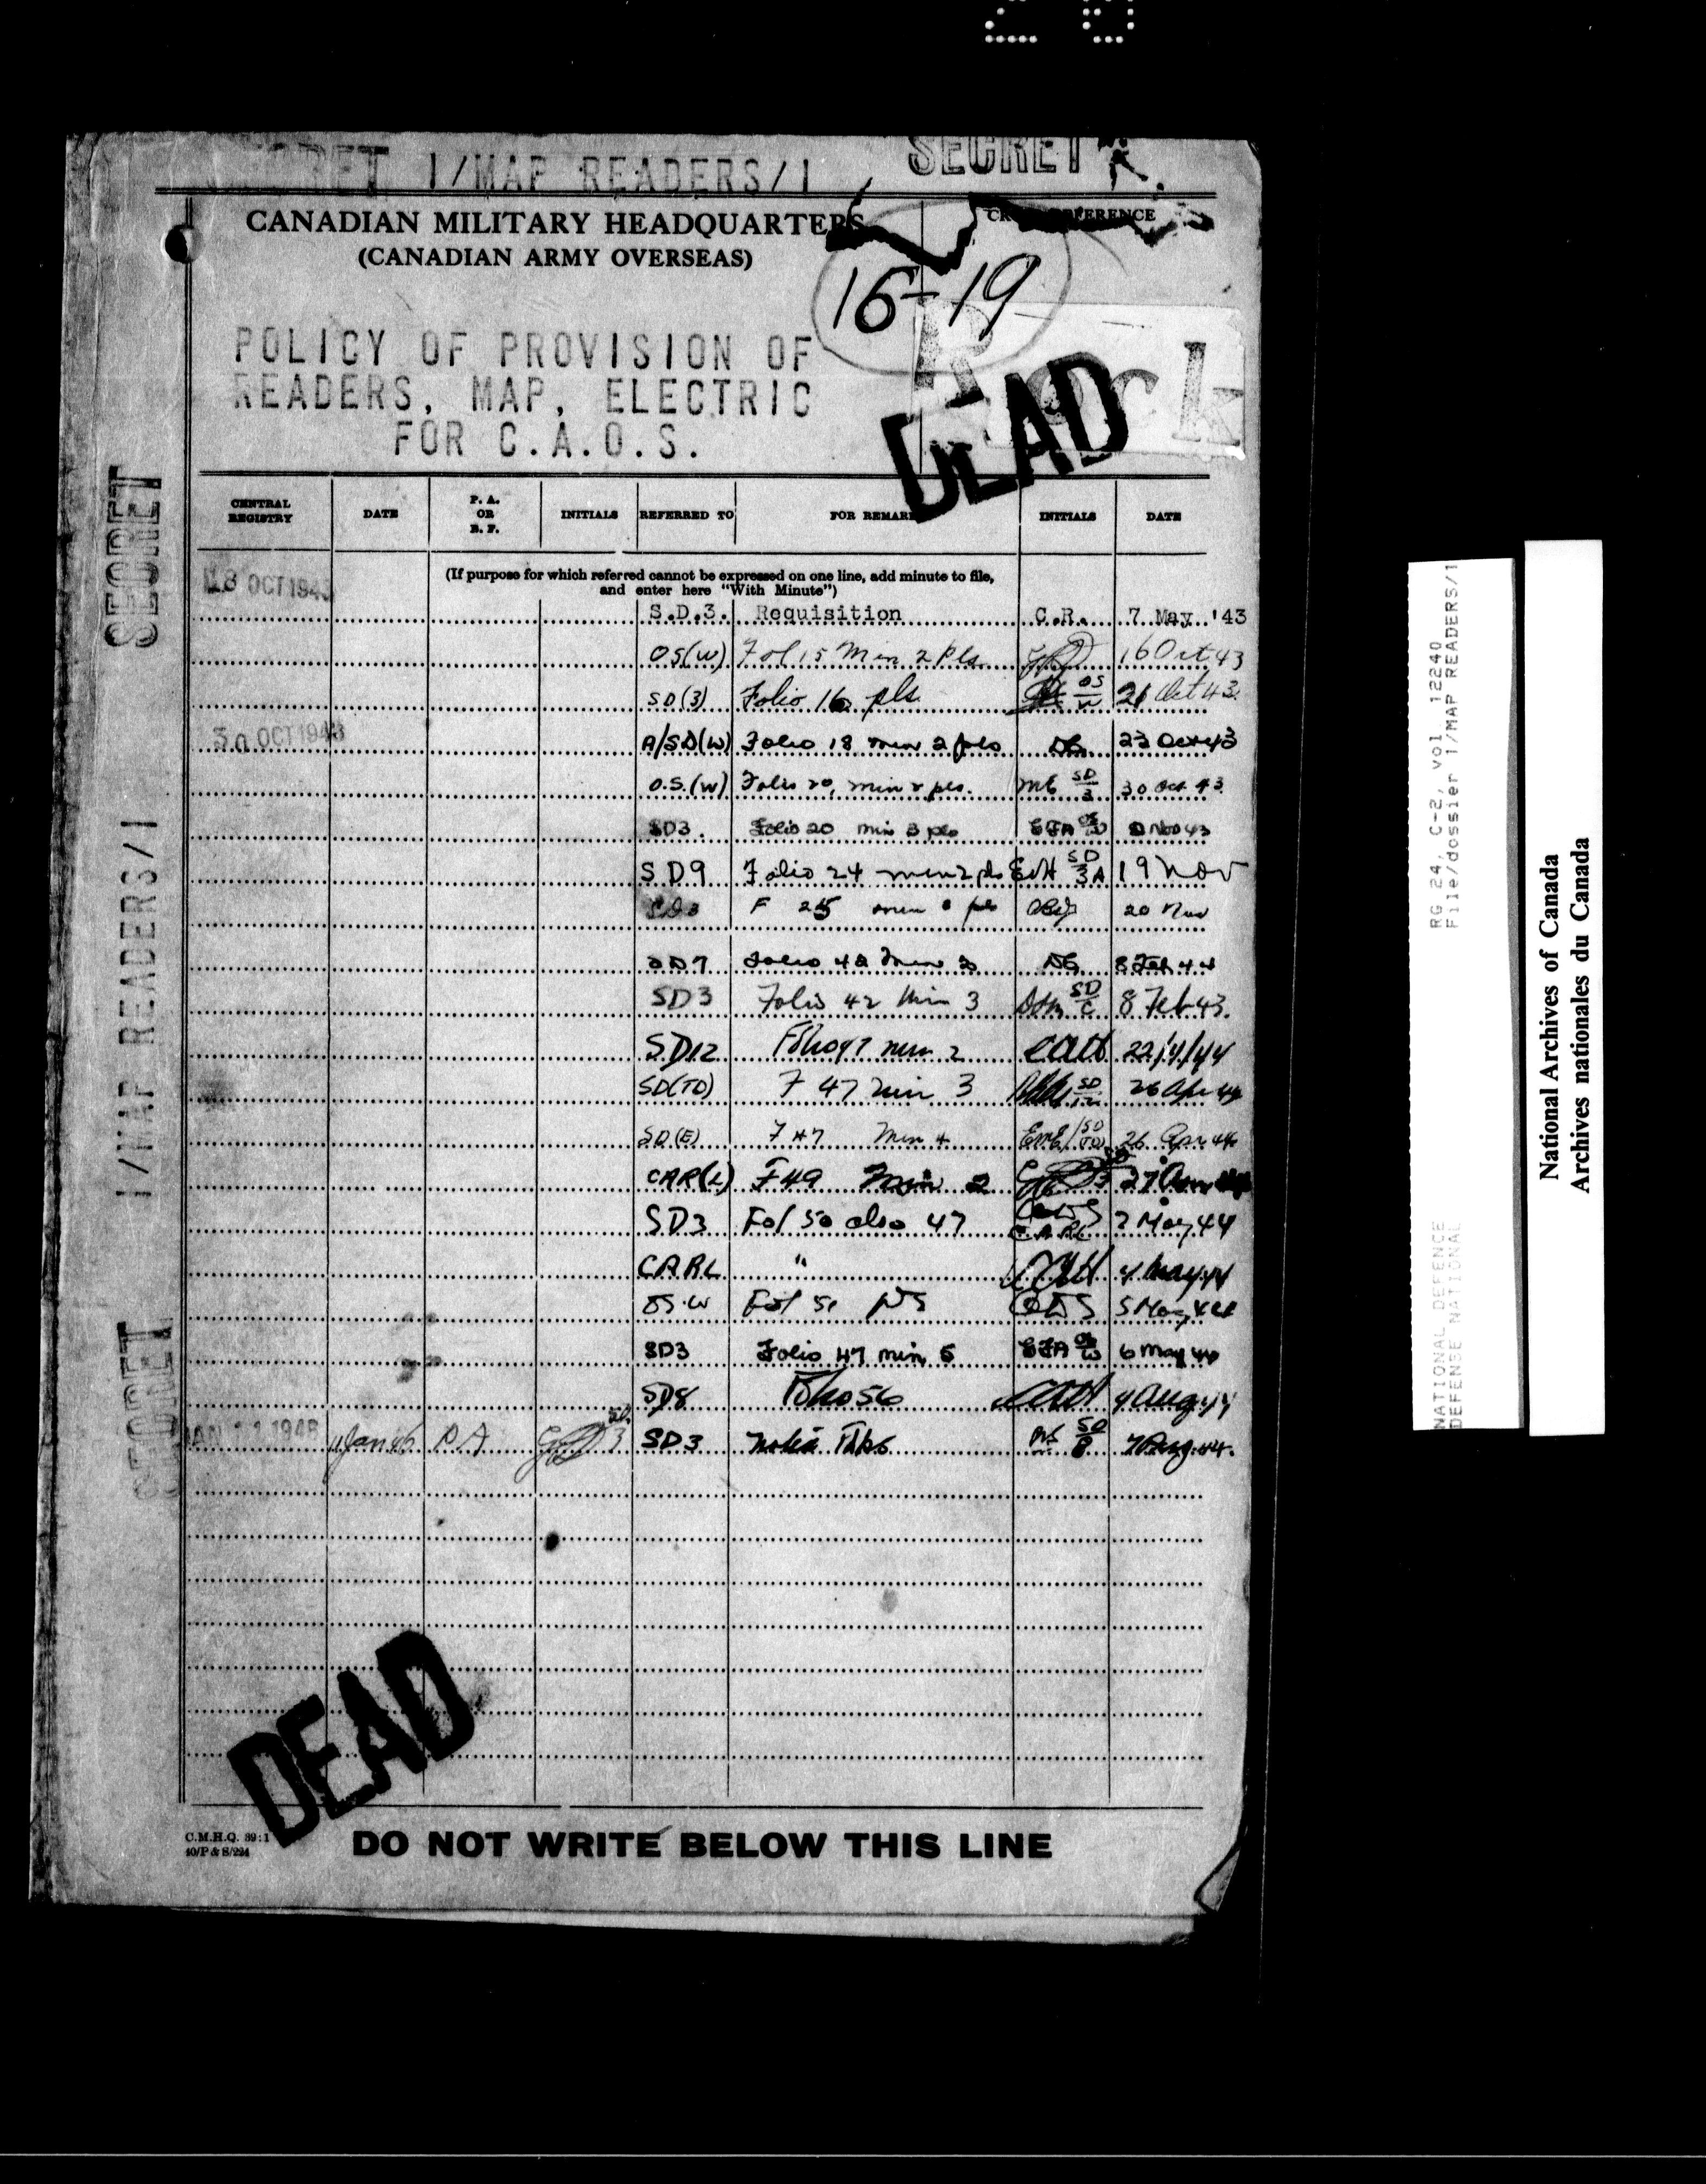 SECRET 1/MAP READERS/1 SECRET
CANADIAN MILITARY HEADQUARTERS
(CANADIAN ARMY OVERSEAS)
CROSS REFERENCE
16-19
POLICY OF PROVISION OF
READERS, MAP, ELECTRIC
FOR C.A.O.S.
DEAD
CENTRAL REGISTRY DATE P. A. OR B. F. INITIALS REFERRED TO FOR REMARKS INITIALS DATE
(If purpose for which referred cannot be expressed on one line, add minute to file,
and enter here "With Minute")
18 OCT 1943
S.D.3. Requisition C.R. 7 May '43
OS(W) Fol 15 Min 2 pls. 16 Oct 43
SD(3) Folio 16 pls. OS/W 21 Oct 43.
30 OCT 1943 A/SD(W) Folio 18 min 2 pls 23 Oct 43
O.S.(W) Folio 20, min 2 pls. SD/3 30 Oct 43
SD3. Folio 20 min 3 pls EFA OS/W 2 Nov 43
SD9 Folio 24 min 2 pls SD/3A 19 Nov
SD3 F 25 min pls 20 Nov
SD7 Folio 42 Min 2 8 Feb 44
SD3 Folio 42 Min 3 SD/C 8 Feb 43.
SD12 Folio 47 min 2 22/4/44
SD(TD) F 47 Min 3 SD/12 26 Apr 44
SD(E) F 47 Min 4 SD/TD 26 Apr 44
CAR(L) F 49 Min 2 27 Apr
SD3 Fol 50 also 47 CARL 2 May 44
CARL " 4 May 44
OS.W Fol 51 pls 5 May 44
SD3 Folio 47 min 5 EFA OS/W 6 May 44
SD8 Folio 56 4 Aug 44
JAN 11 1946 11 Jan 46 P A SD3 SD/8 7 Aug 44.
DEAD
C.M.H.Q. 39:1
40/P & S/224
DO NOT WRITE BELOW THIS LINE
SECRET
1/MAP READERS/1
SECRET
RG 24, C-2, vol. 12240
File/dossier 1/MAP READERS/1
NATIONAL DEFENCE
DEFENSE NATIONAL
National Archives of Canada
Archives nationales du Canada